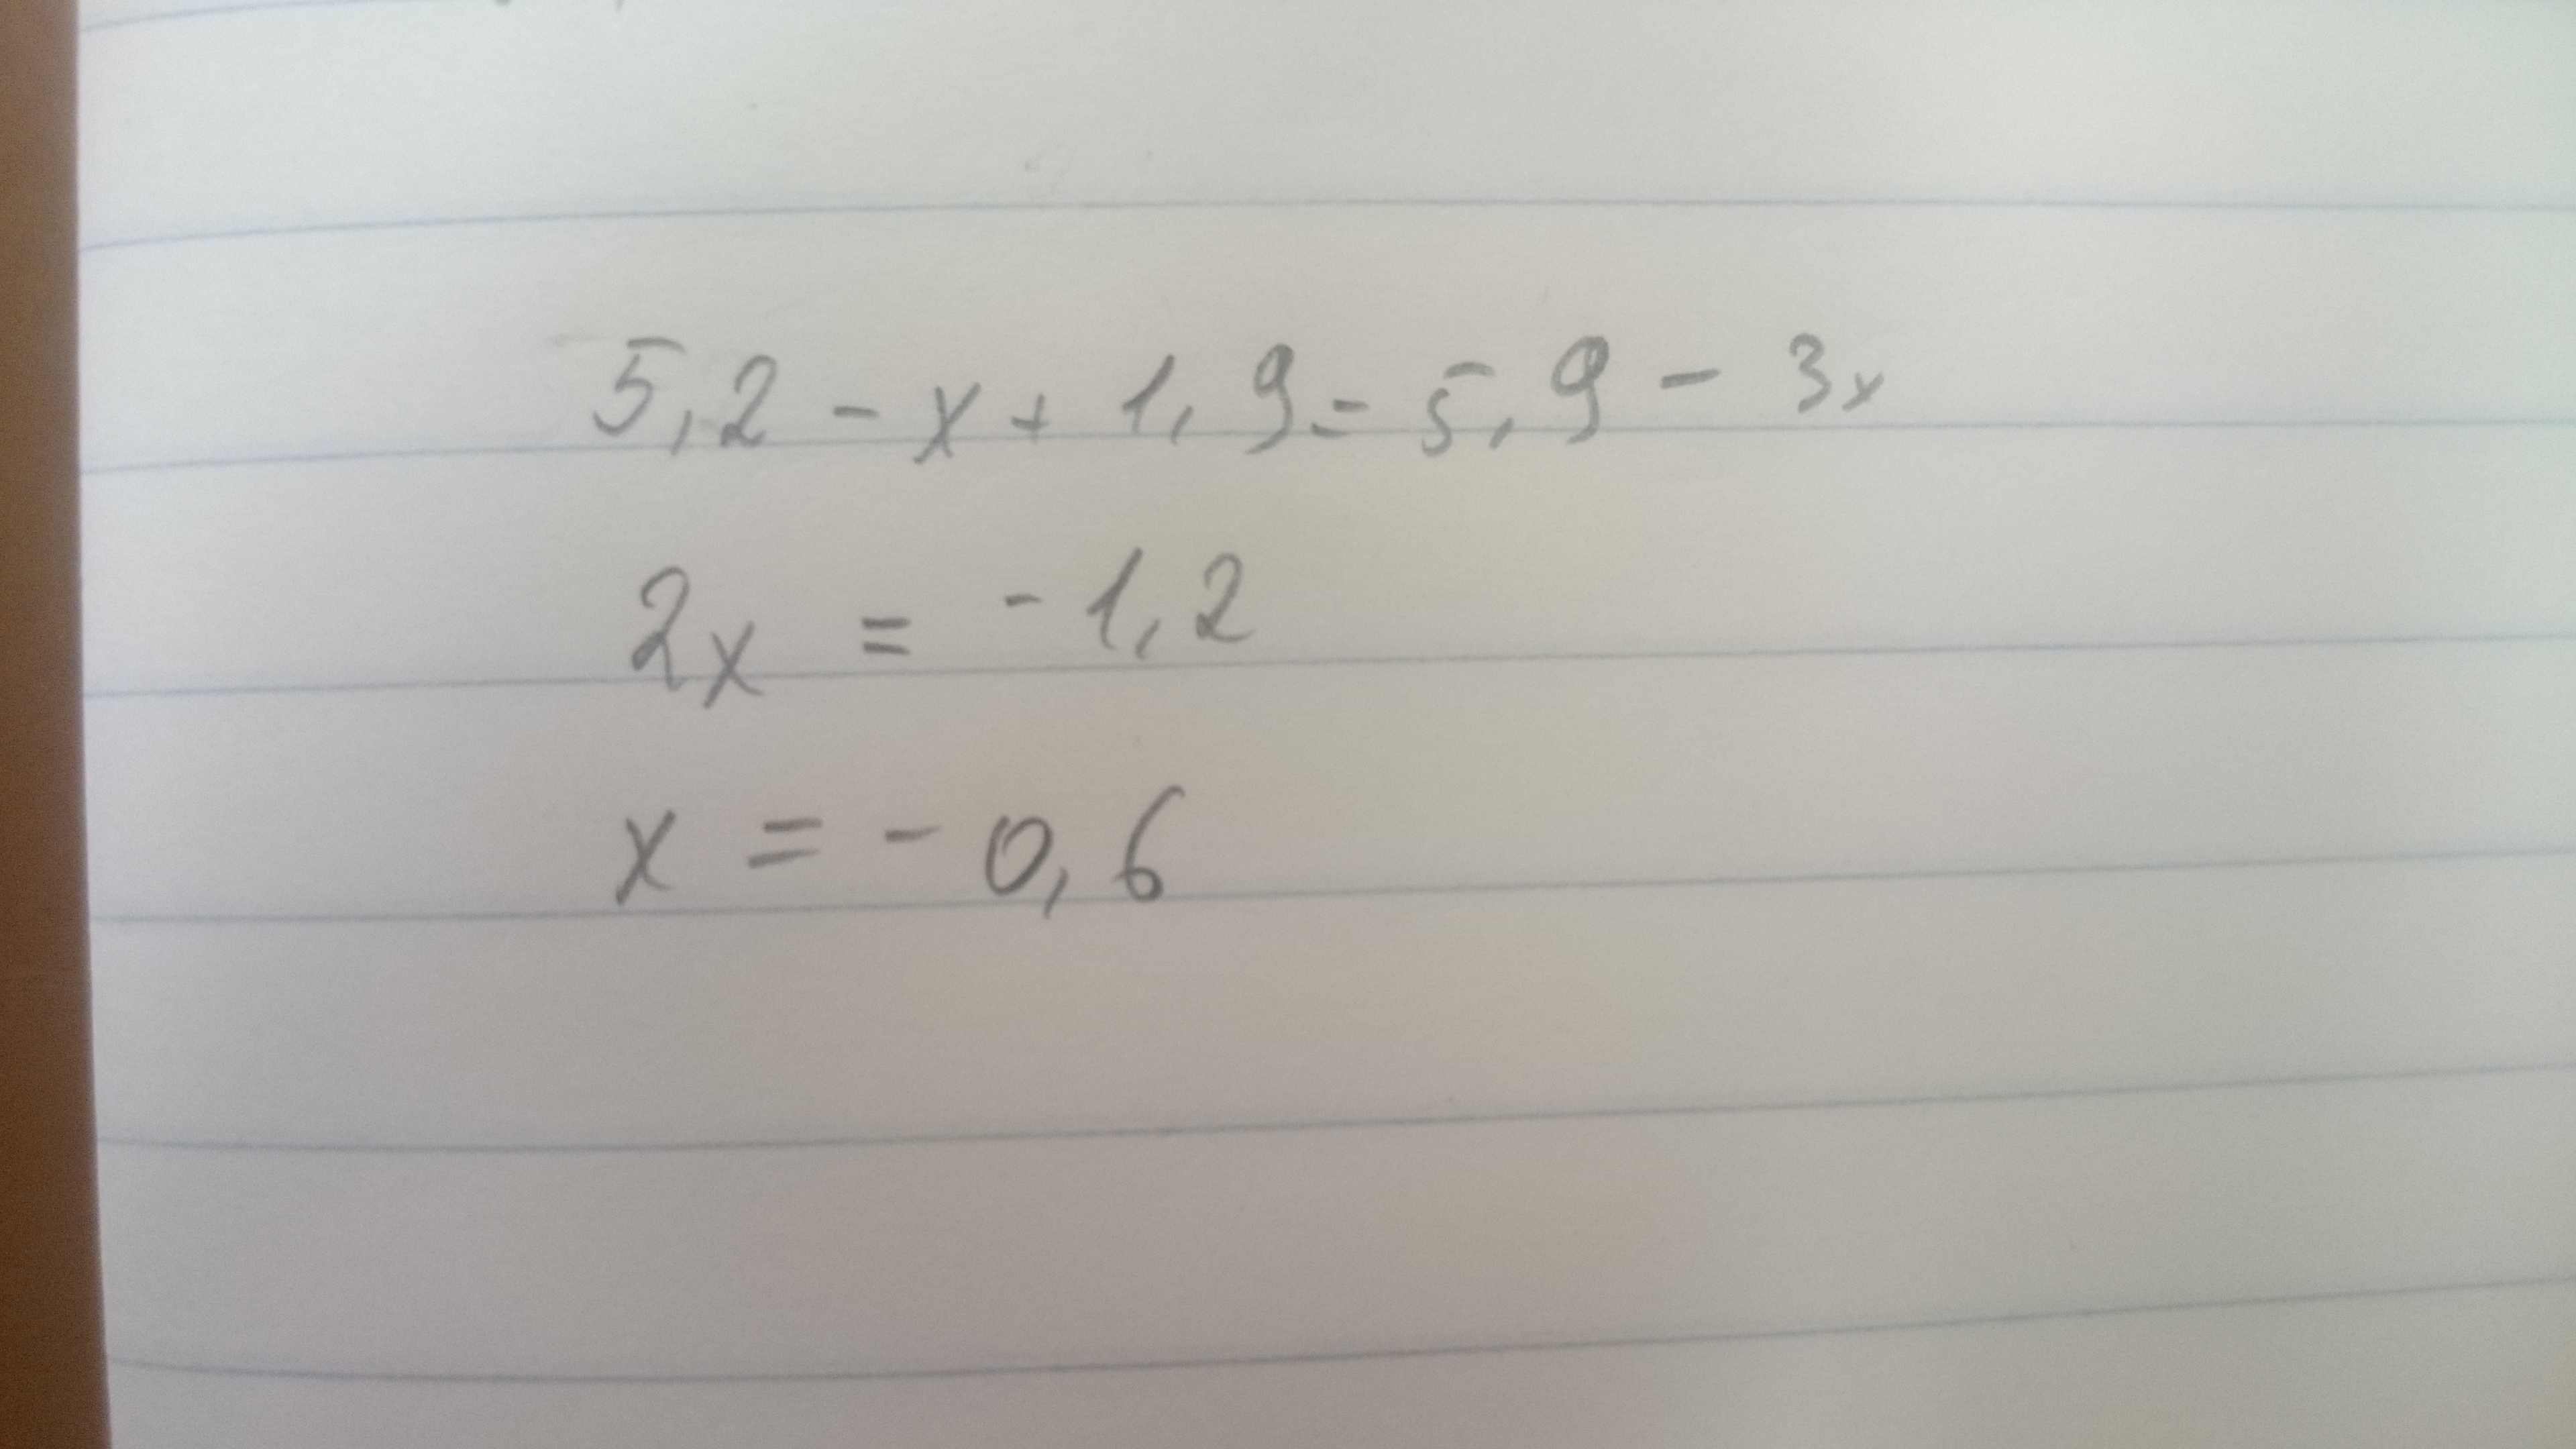 5,2 - x + 1,9 = 5,9 - 3x
2x = -1,2
x = -0,6